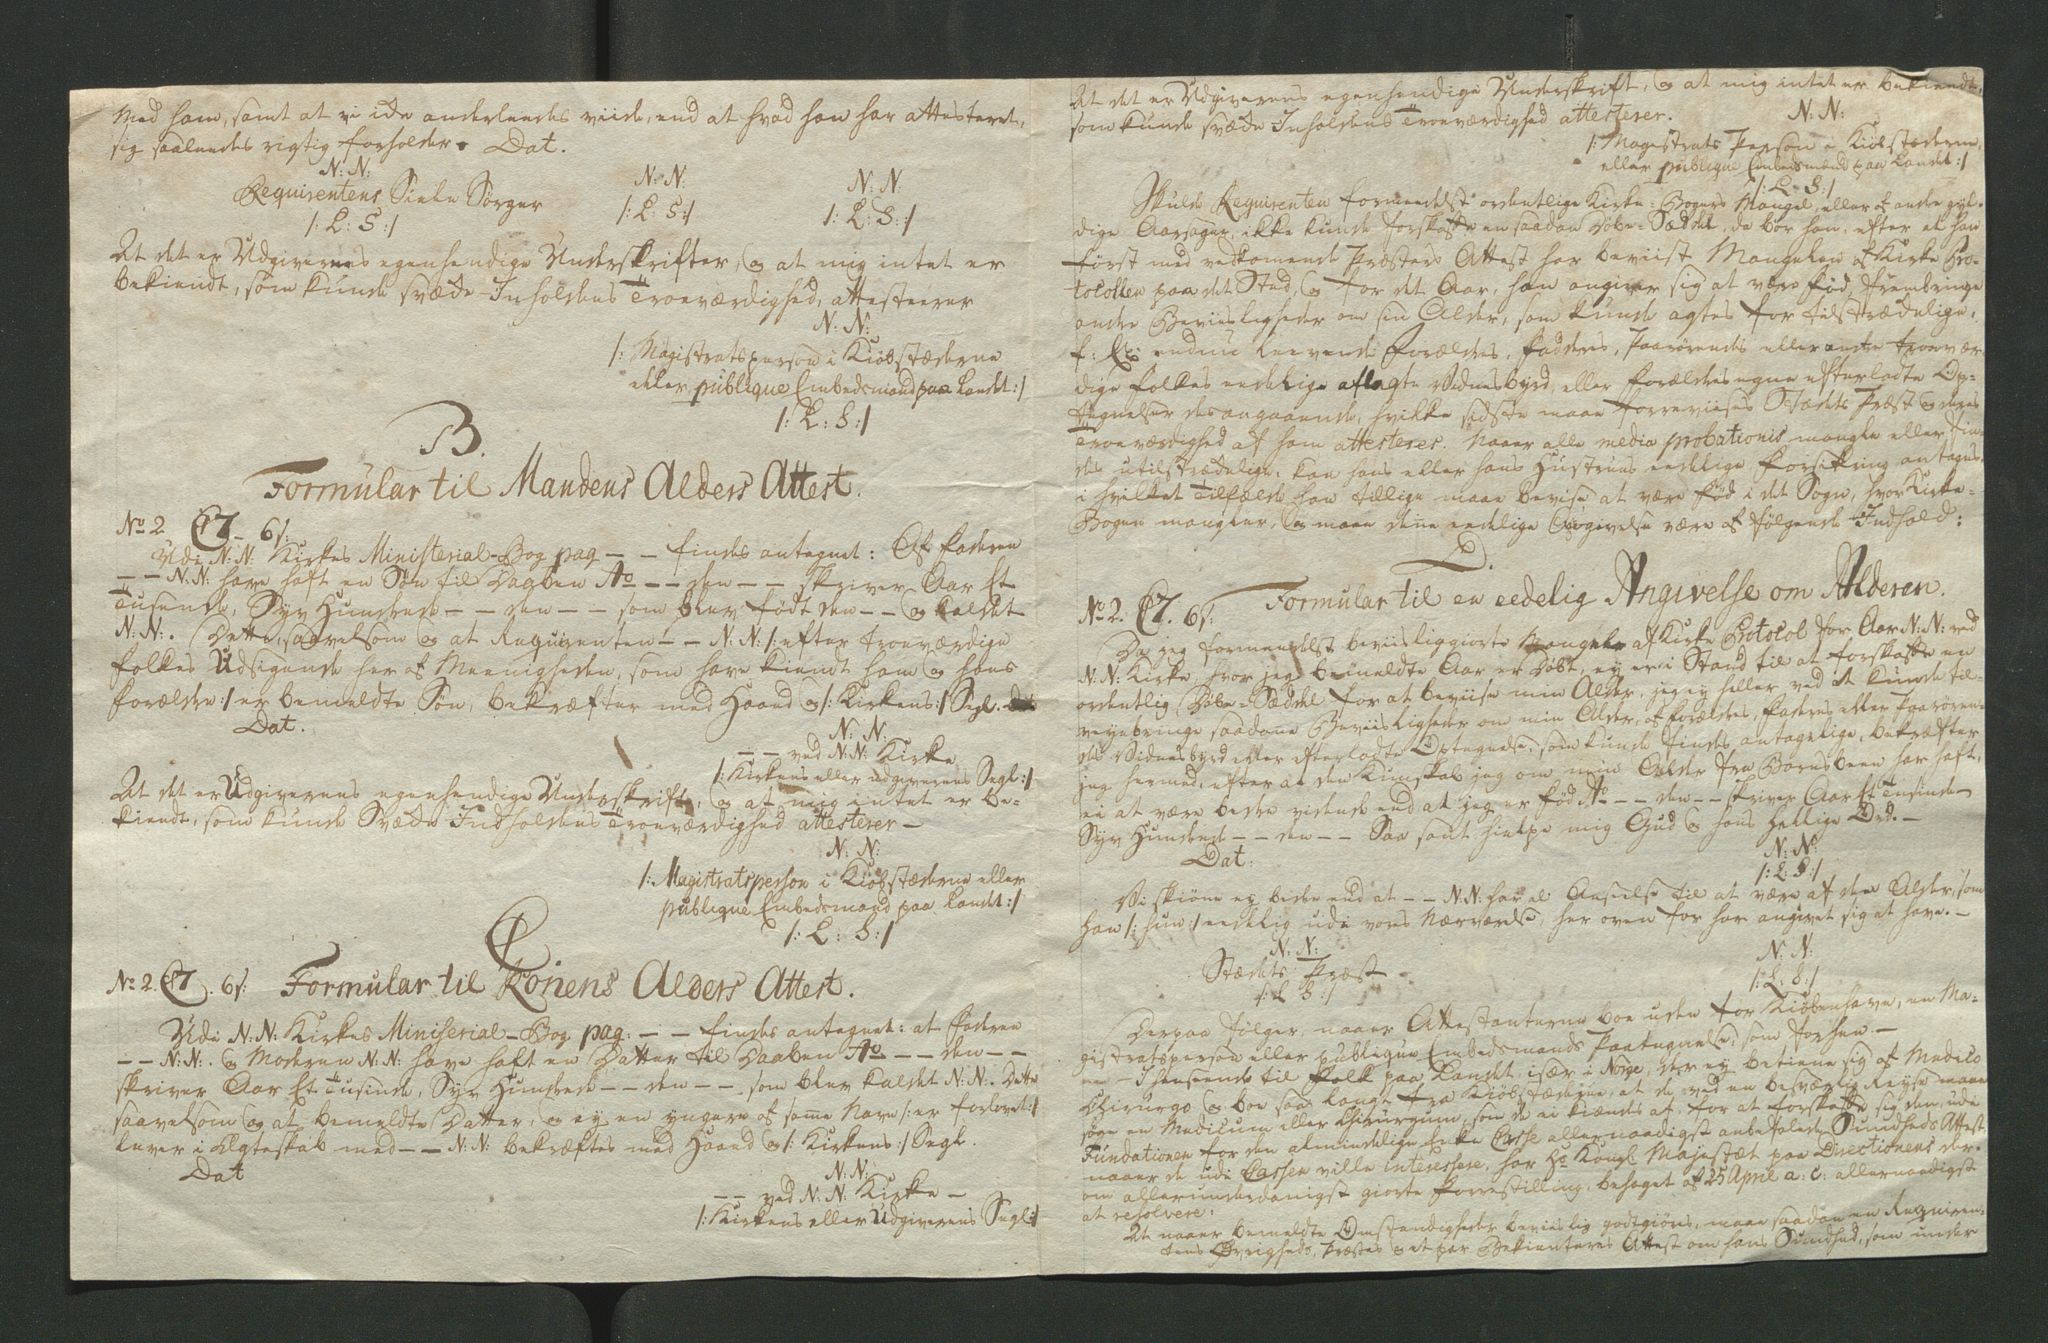 Med ham, samt at vi icke anderleedes viide, end at hvad han har attesteret,
sig saaleedes rigtig forholder. Dat.
N: N:
Requirentens Siele Sørger
/: L: S :/
N: N:
/: L: S :/
N: N:
/: L: S: :/
At det er Udgivernes egenhendige Underskrifter, og at mig intet er
bekiendt, som kunde svæcke Inholdens Troeværdighed, attesterer
N: N:
/: Magistratsperson i Kiøbstæderne
eller publique Embedsmand paa Landet :/
/: L: S :/
B.
Formular til Mandens Alders Attest.
No 2 C7. 6s.
Udi N: N: Kirkes Ministerial-Bog pag - - findes antegnet: At Faderen
- - N: N: have haft en Søn til Daaben Ao - - den - - skriver Aar Et
Tusende, Syv Hundrede - - den - - som blev født den - - og kaldet
N: N:. Dette, saavelsom og at Requirenten - - N: N: /: efter troeværdige
Folkes Udsigende her af Meenigheden, som have kiendt ham og hans
Forældre :/ er bemeldte Søn, bekræfter med Haand og /: Kirkens :/ Segl.
Dat.
N: N:
- - ved N: N: Kirke
/: Kirkens eller udgiverens Segl :/
At det er Udgiverens egenhendige Underskrift, og at mig intet er be-
kiendt, som kunde Svæcke Indholdens Troeværdighed attesterer -
N: N:
/: Magistratsperson i Kiøbstæderne eller
publique Embedsmand paa Landet :/
/: L: S: :/
C
No 2. C7. 6s: Formular til Konens Alders Attest.
Udi N: N: Kirkes Miniserial-Bog pag: - - findes antegnet: at Faderen
- - N: N:. og Moderen N: N: have haft en Datter til Daaben Ao - - den - -
skriver Aar Et Tusinde, Syv Hundrede - - den - - som blev kaldet N: N:. Dette
saavelsom og at bemeldte Datter, og ey en yngere af samme Navn /: er forlovet :/
lever i Ægteskab med - - N: N: bekræftes med Haand og /: Kirkens :/ Segl.
Dat
N: N:
- - ved N: N: Kirke -
/: Kirkens eller Udgiverens Segl :/
At det er Udgiverens egenhendige Underskrift, og at mig intet er bekiendt,
som kunde svæcke Inholdens Troeværdighed attesterer.
N: N:
/: Magistrats Person i Kiøbstæderne,
eller publique Embedsmænd paa Landet :/
/: L: S: :/
Skulde Requirenten formedelst ordentlige Kirke-Bogers Mangel, eller af andre gyl-
dige Aarsager, ikke kunde forskaffe en saadan Døbe-Seddel, da bør han, efter at han
først med vedkomende Præsters Attest har beviist Mangelen af Kirke Pro-
tocollen paa det Sted, og for det Aar, han angiver sig at være fød, frembringe
andre Beviisligheder om sin Alder, som kunde agtes for tilstræckelige,
f: Ex: endnu levende Forældres, Fadderes, Paarørendes eller andre troevær-
dige Folkes eedelige aflagte Vidnesbyrd, eller Forældres egne efterladte Op-
tegnelser desangaaende, hvilke sidste maae foreviises Stædets Præst og deres
Troeværdighed af ham attesteres. Naar alle media probationis mangle eller fin-
des utilstræckelige, kan hans eller hans Hustrues eedelige Forsikring antages,
i hvilket Tilfælde han tillige maae bevise at være fød i det Sogn, hvor Kirke-
Bogen mangler, og maae denne eedelige Angivelse være af følgende Indhold:
D.
No 2. C7. 6s: Formular til en eedelig Angivelse om Alderen.
Da jeg formedelst beviisliggiorte Mangel af Kirke Protocol for Aar N: N: ved
N: N: Kirke, hvor jeg bemeldte Aar er Døbt, ey er i Stand til at forskaffe en
ordentlig Døbe-Seddel for at beviise min Alder, jeg ey heller ved at kunde til-
veyebringe saadane Beviisligheder om min Alder, af Forældres, Fadderes eller Paarøren-
des Vidnesbyrd eller efterladte Optegnelse, som kunde findes antagelige, bekræfter
jeg hermed, efter at den Kundskab jeg om min Alder fra Barnsbeen har haft,
ei at være bedre vidende end at jeg er fød Ao - - den - - skriver Aar Et Tusinde
Syv Hundrede - - den - - Saa sant hielpe mig Gud og hans hellige Ord. -
Dat:
N: N:
/: L: S :/
Vi skiøne ey bedre end at - - N: N: har al Anseelse til at være af den Alder, som
han /: hun :/ eedelig udi vores Nærværelse, her oven for har angivet sig at have. -
N: N:
Stædets Præst
/: L: S :/
N: N:
/: L: S :/
Derpaa følger, naar Attestanterne boe uden for Kiøbenhavn, en Ma-
gistratsperson eller publique Embedsmands Paategnelse, som forhen. -
- Ihenseende til Folk paa Landet, især i Norge, der ey betiene sig af Medico
Chirurgo og boe saa langt fra Kiøbstæderne, at de ved en besværlig Reyse maae
søge en Medicum eller Chirurgum, som de ei kiendes af, for at forskaffe sig den, ude
Fundationen for den almindelige Enke Casse allernaadigst anbefalede Sundheds Attest
naar de udi Cassen ville interessere, har Ho Kongl Majestæt paa Directionens der-
om allerunderdanigst giorte Forrestilling, behaget af 25 April a: c: allernaadigst
at resolvere:
At naar bemeldte Omstændigheder beviislig godtgiøres, maae saadan en Requiren-
tens Øvrigheds, Præstes og et par Bekiendteres Attest om hans Sundhed, som under